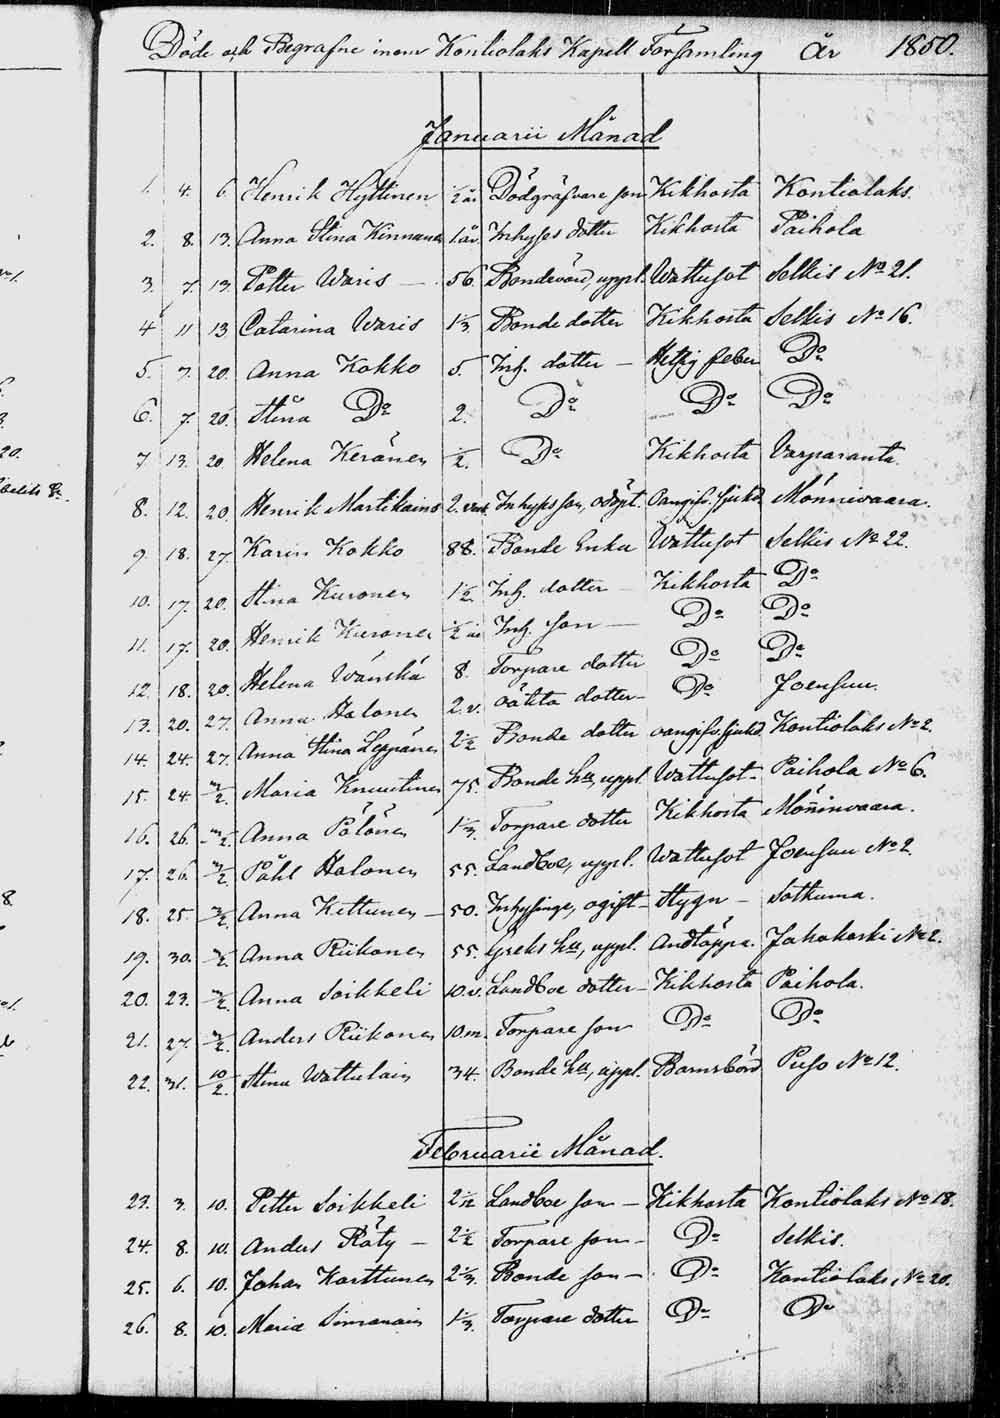 Döde och Begrafne inom Kontiolaks Kapell Församling År 1850.
Januarii Månad
1. 4. 6. Henrik Hyttinen ½ år Dödgräfvare son Kikhosta Kontiolaks.
2. 8. 13. Anna Stina Kinnunen 1 år. Inhyses dotter Kikhosta Paihola
3. 7. 13. Petter Waris — 56. Bondevärd, uppl. Wattusot Selkis No 21.
4 11 13 Catarina Waris 1⅓ Bonde dotter Kikhosta Selkis No 16.
5. 7. 20. Anna Kokko 5. Inh. dotter — Hetsig feber Do
6. 7. 20. Stina Do 2. Do Do Do
7 13. 20. Helena Keränen ½. Do Kikhosta Varparanta.
8. 12. 20. Henrik Martikainen 2. veck Inhyses son, odöpt. Oangifv. sjukd. Mönnivaara.
9. 18. 27. Karin Kokko 88. Bonde Enka Wattusot Selkis No 22.
10. 17. 20. Stina Kuronen 1½ Inh. dotter — Kikhosta Do
11. 17. 20. Henrik Kuronen ½ år Inh. son — Do Do
12. 18. 20. Helena Wänskä 8. Torpare dotter Do Do
13. 20. 27. Anna Halonen 2. v. oäkta dotter — Do Joensuu.
14. 24. 27. Anna Stina Leppänen 2½ Bonde dotter oangifv. sjukd. Kontiolaks No 2.
15. 24 3/2. Maria Knuutinen 75. Bonde hu, uppl. Wattusot — Paihola No 6.
16. 26. 3/2. Anna Pölönen 1⅓. Torpare dotter Kikhosta Mönninvaara.
17. 26. 3/2. Påhl Halonen 55. Landboe, uppl. Wattusot Joensuu No 2.
18. 25. 3/2. Anna Kettunen — 50. Inhysinge, ogift — Stygn — Sotkuma.
19. 30. 3/2. Anna Riikonen 55. Greks hu, uppl. Andtäppa. Jakokoski No 2.
20. 23. 3/2. Anna Soikkeli 10. v. Landboe dotter — Kikhosta Paihola.
21. 27. 3/2. Anders Riikonen 10. m. Torpare son Do Do
22. 31. 10/2. Stina Wattulain 34. Bonde hu, uppl. Barnsbörd Puso No 12.
Februarii Månad.
23. 3. 10. Petter Soikkeli Landboe son — Kikhosta Kontiolaks No 18.
24. 8. 10. Anders Räty — 2½ Torpare son — Do Selkis.
25. 6. 10. Johan Karttunen 2⅓. Bonde son — Do Kontiolaks, No 20.
26. 8. 10. Maria Simanain 1⅓. Torpare dotter Do Do